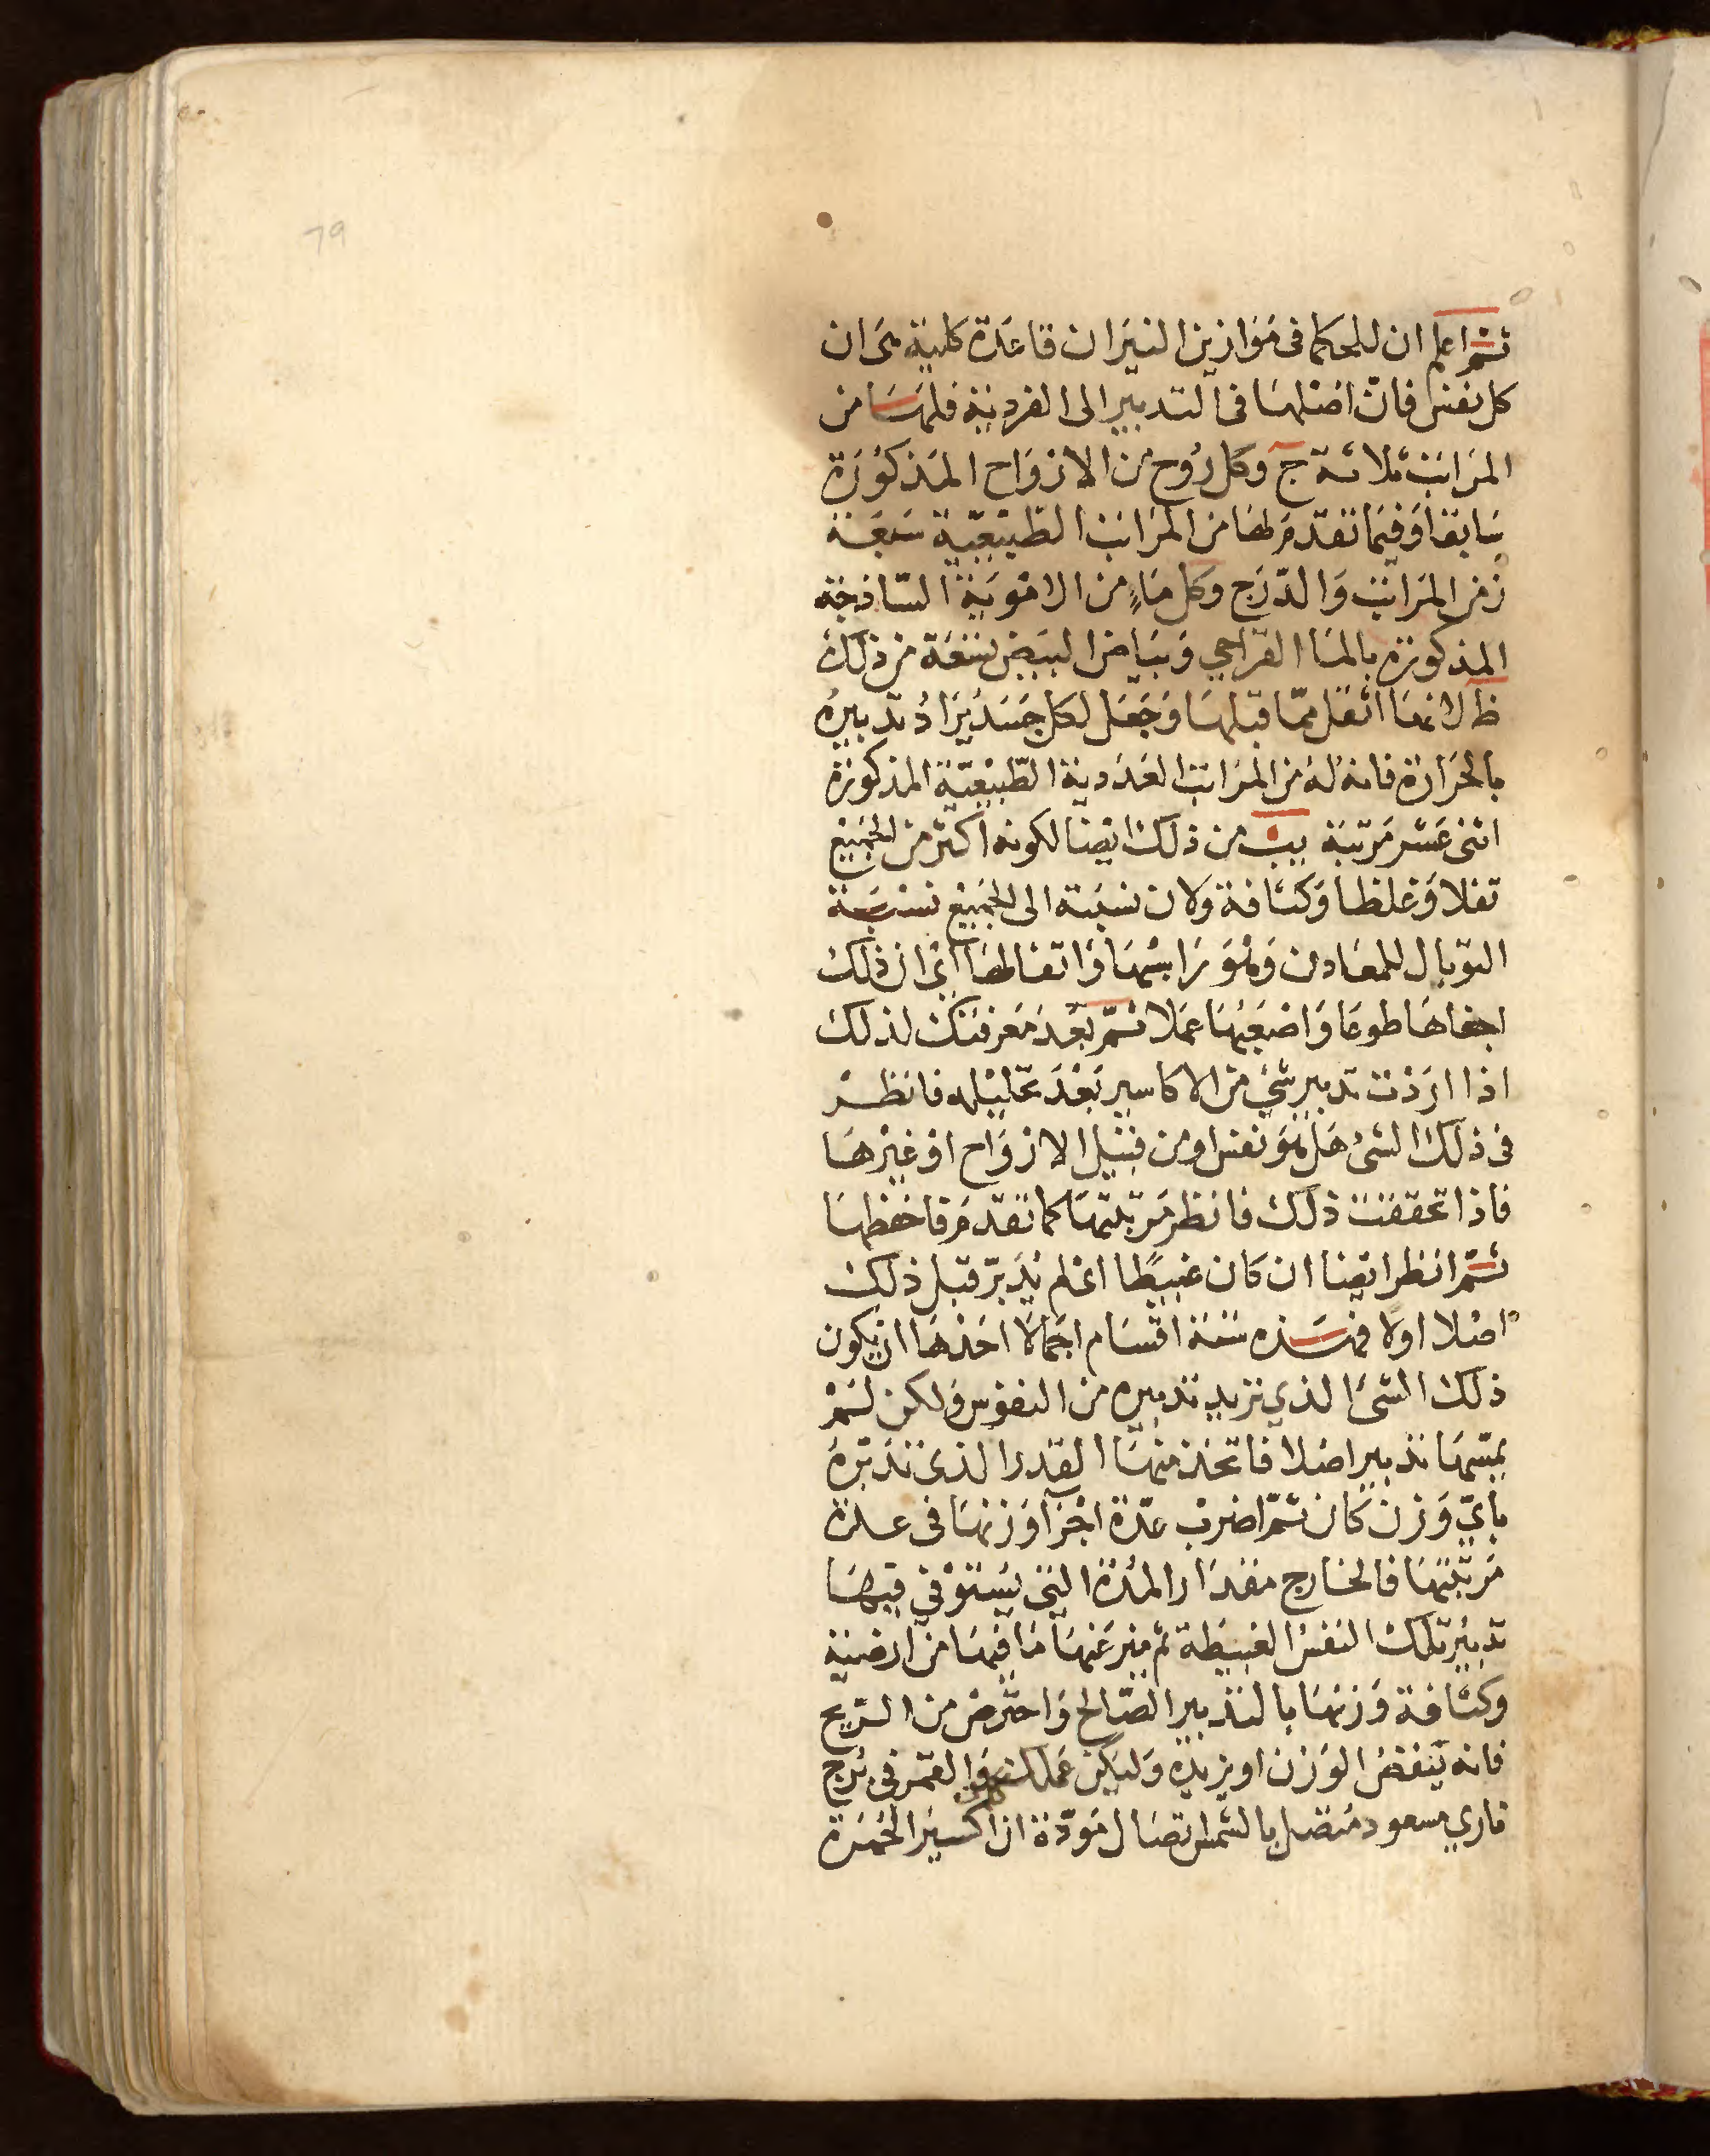 79
ثم اعلم ان للحكما فى موازين النيران قاعدة كلية هى ان
كل نفس فان اصلها فى التدبير الى الفردية فلها من
المراتب ثلاثة ج وكل روح من الارواح المذكورة
سابقا وفيما تقدم لها من المراتب الطبيعية سبعة
ز من المراتب والدرج وكل ماء من الامويه الساذجة
المذكورة بالما القراحى وبياض البيض تسعة من ذلك
ط لانها اثقل مما قبلها وجعل لكل جسد يراد تدبيره
بالحرارة فانه له من المراتب العددية الطبيعية المذكورة
اثنى عشر مرتبة يب من ذلك ايضا لكونه اكثر من الجميع
ثقلا وغلظا وكثافة ولان نسبته الى الجميع نسبة
التوبال للمعادن وهو يرا بسها واتفالها اى ان ذلك
اجفاها طوعا واضعبها عملا ثم بعد معرفتك لذلك
اذا اردت تدبير شئ من الاكاسير بعد تحليله فانظر
فى ذلك الشئ هل هو نفس او من قبيل الارواح او غيرها
فاذا تحققت ذلك فانظر مرتبتها كما تقدم فاحفظها
ثم انظر ايضا ان كان غبيطا اى لم يدبر قبل ذلك
اصلا اولا فهذه ستة اقسام اجمالا احدها ان يكون
ذلك الشئ الذي نريد تدبيره من النفوس ولكن لم
يمسها تدبير اصلا فاتخذ منها القدر الذى تدبره
باي وزن كان ثم اضرب عدة اجزآ وزنها فى عدة
مرتبتها فالخارج مقدار المدة التى يستوفى فيها
تدبير تلك النفس الغبيطة ثم ميز عنها ما فيها من ارضية
وكثافة وزنها بالتدبير الصالح واحترص من الريح
فانه ينقص الوزن او يزيده وليكن عملك والقمر فى برج
ناري مسعود متصل بالشمس اتصال مودة ان اكسير الحمرة